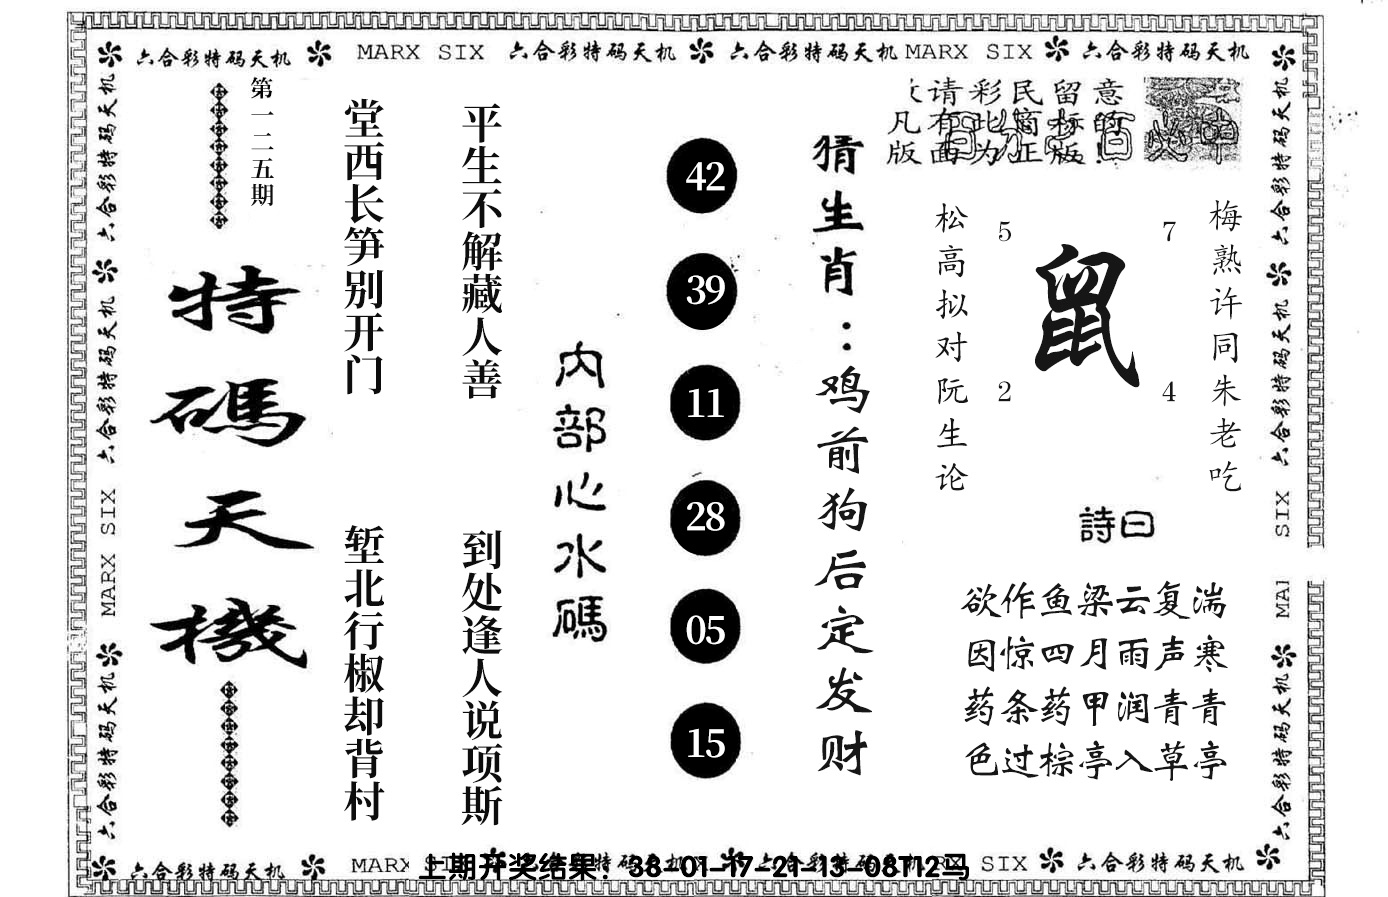 六合彩特码天机 MARX SIX 六合彩特码天机 六合彩特码天机 MARX SIX 六合彩特码天机
六合彩特码天机
六合彩特码天机
MARX SIX
六合彩特码天机
第一二五期
特碼天機
堂西长笋别开门
堑北行椒却背村
平生不解藏人善
到处逢人说项斯
内部心水碼
42
39
11
28
05
15
猜生肖：鸡前狗后定发财
请彩民留意
凡有此商标的
版面为正版!
松高拟对阮生论
5
7
鼠
2
4
梅熟许同朱老吃
詩曰
欲作鱼梁云复湍
因惊四月雨声寒
药条药甲润青青
色过棕亭入草亭
六合彩特码天机
六合彩特码天机
SIX
MAI
六合彩特码天机
六合彩特码天机 MARX SIX 六合彩特码天机 SIX 六合彩特码天机
上期开奖结果：38-01-17-21-13-08T12马